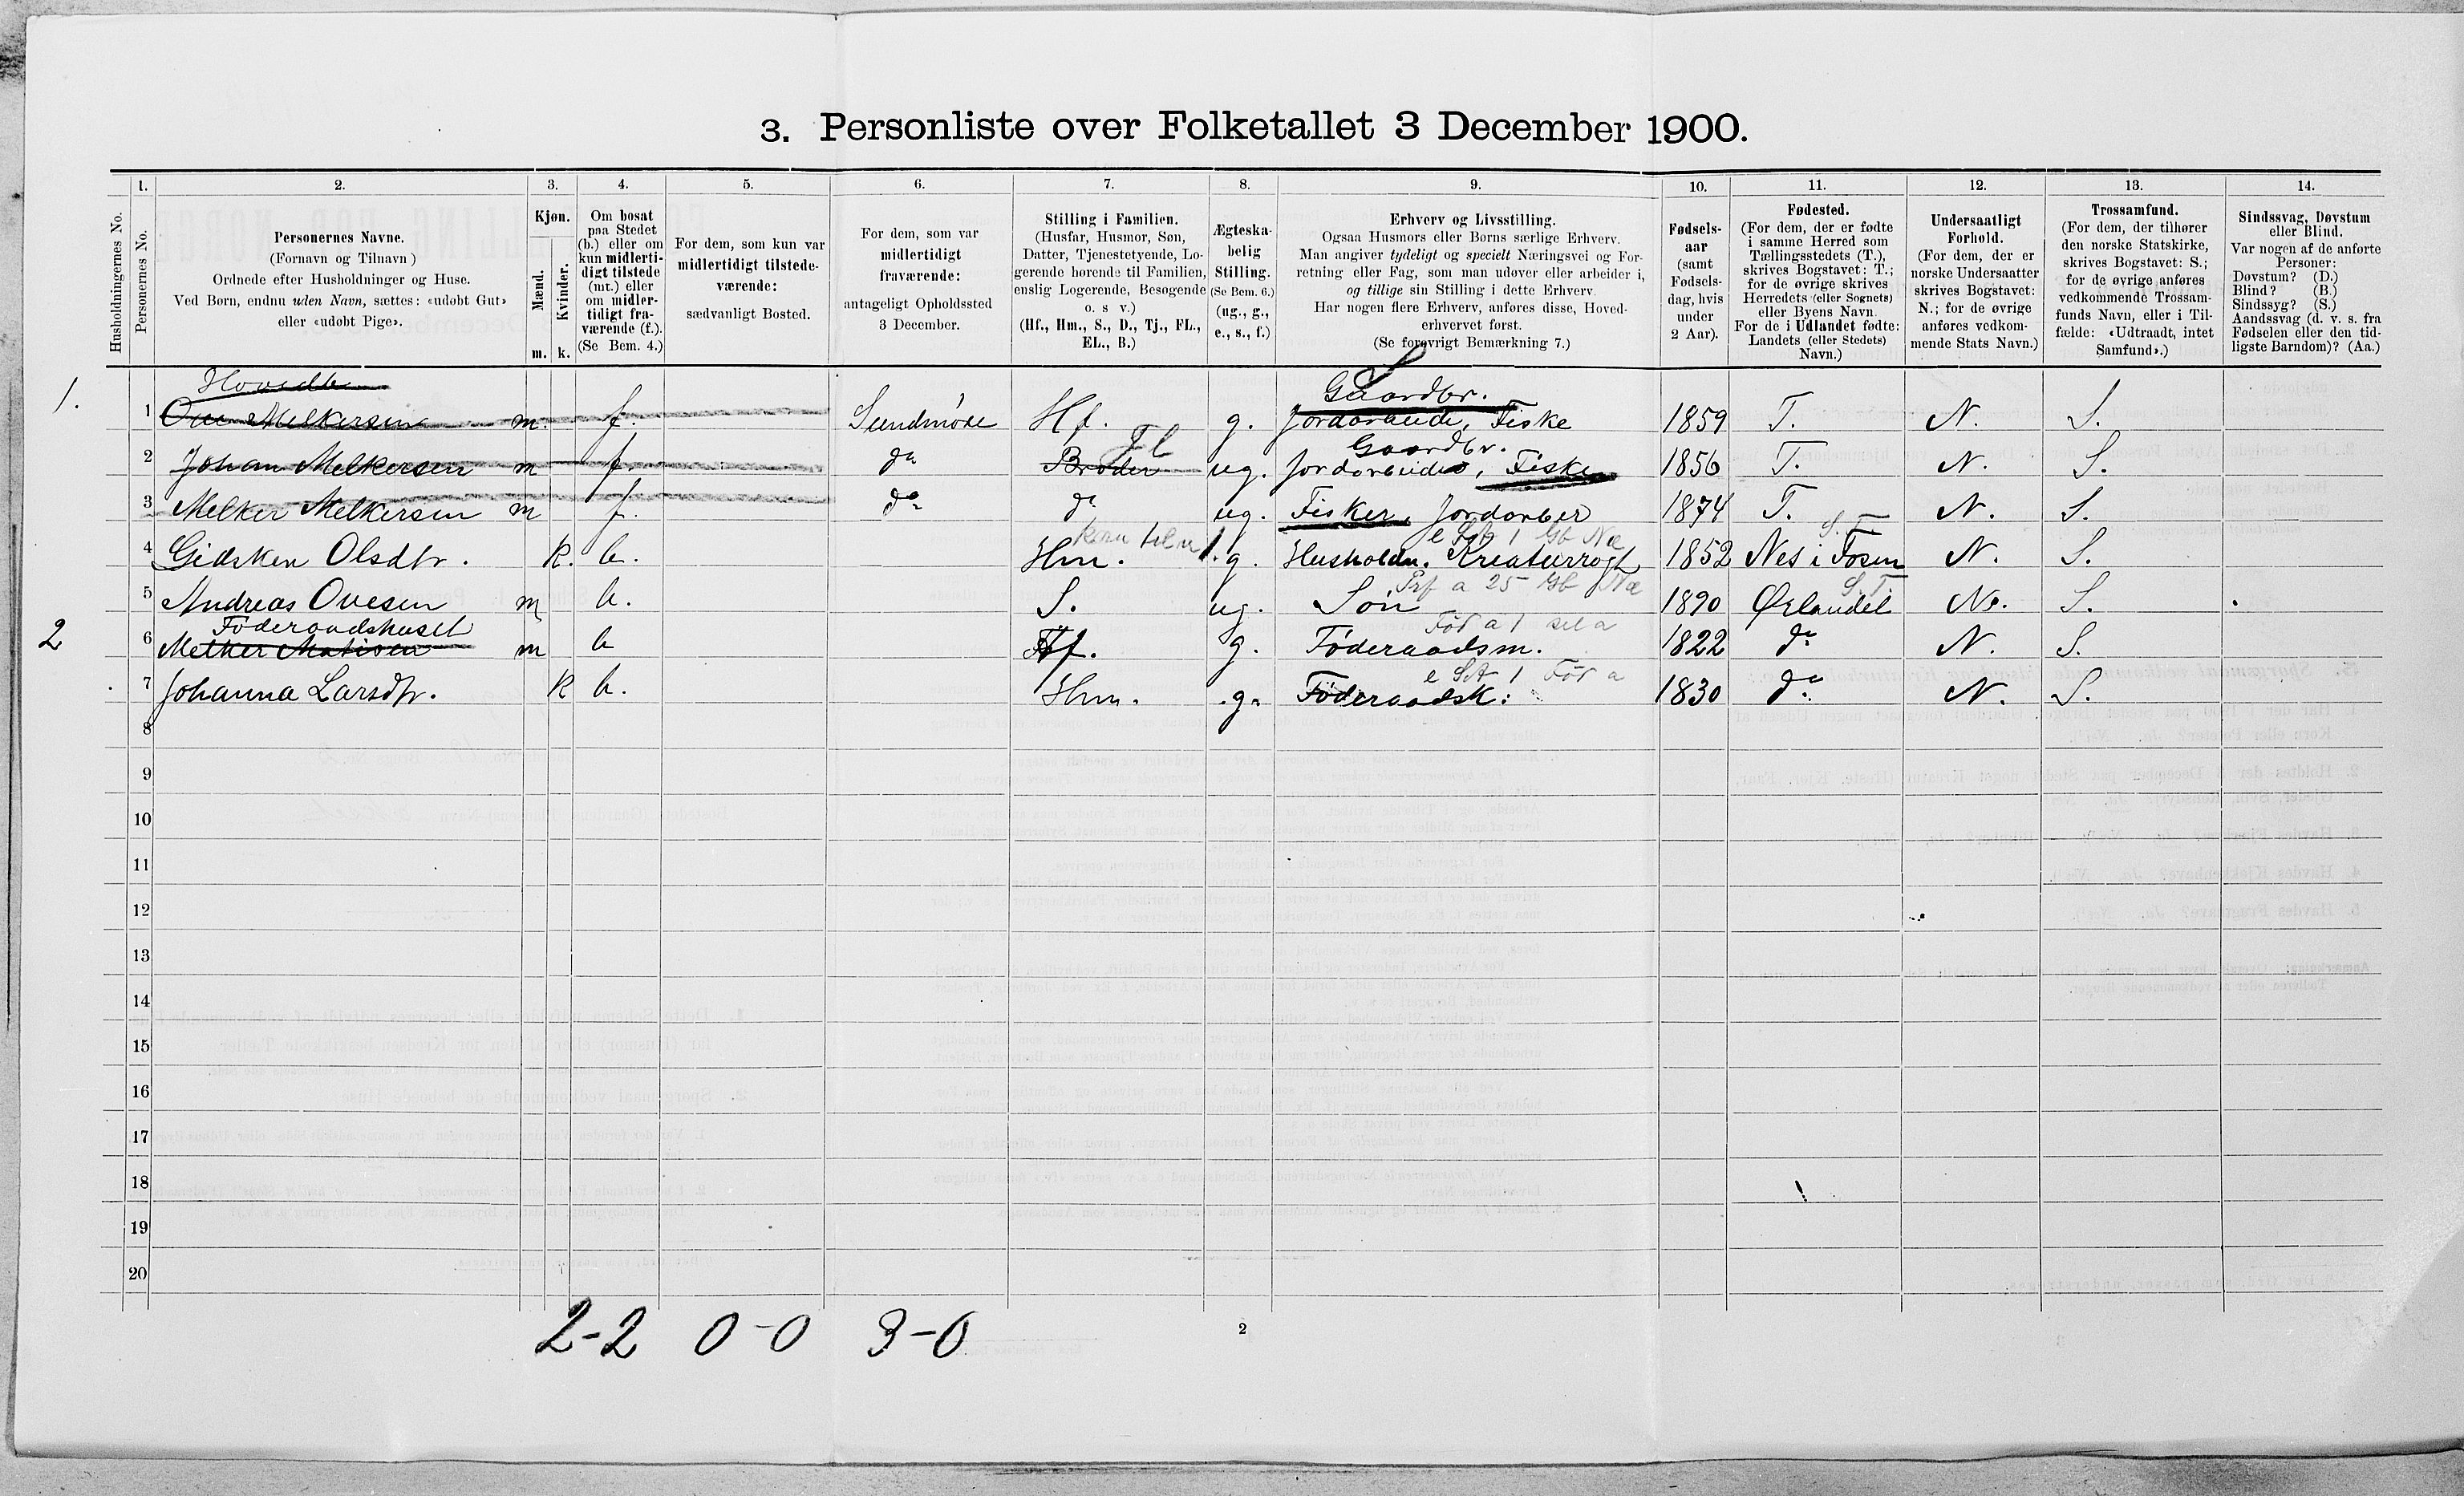 3. Personliste over Folketallet 3 December 1900.
1. 2. 3. 4. 5. 6. 7. 8. 9. 10. 11. 12. 13. 14.
Husholdningernes No.
Personernes No.
Personernes Navne.
(Fornavn og Tilnavn)
Ordnede efter Husholdninger og Huse.
Ved Børn, endnu uden Navn, sættes: «udøbt Gut»
eller «udøbt Pige».
Kjøn.
Mænd.
Kvinder.
m. k.
Om bosat
paa Stedet
(b.) eller om
kun midlerti-
digt tilstede
(mt.) eller
om midler-
tidigt fra-
værende (f.).
(Se Bem. 4.)
For dem, som kun var
midlertidigt tilstede-
værende:
sædvanligt Bosted.
For dem, som var
midlertidigt
fraværende:
antageligt Opholdssted
3 December.
Stilling i Familien.
(Husfar, Husmor, Søn,
Datter, Tjenestetyende, Lo-
gerende hørende til Familien,
enslig Logerende, Besøgende
o. s v.)
(Hf., Hm., S., D., Tj., FL.,
EL., B.)
Ægteska-
belig
Stilling.
(Se Bem. 6.)
(ug., g.,
e., s., f.)
Erhverv og Livsstilling.
Ogsaa Husmors eller Børns særlige Erhverv.
Man angiver tydeligt og specielt Næringsvei og For-
retning eller Fag, som man udøver eller arbeider i,
og tillige sin Stilling i dette Erhverv.
Har nogen flere Erhverv, anføres disse, Hoved-
erhvervet først.
(Se forøvrigt Bemærkning 7.)
Fødsels-
aar
(samt
Fødsels-
dag, hvis
under
2 Aar).
Fødested.
(For dem, der er fødte
i samme Herred som
Tællingsstedets (T.),
skrives Bogstavet: T.;
for de øvrige skrives
Herredets (eller Sognets)
eller Byens Navn.
For de i Udlandet fødte:
Landets (eller Stedets)
Navn.)
Undersaatligt
Forhold.
(For dem, der er
norske Undersaatter
skrives Bogstavet:
N.; for de øvrige
anføres vedkom-
mende Stats Navn.)
Trossamfund.
(For dem, der tilhører
den norske Statskirke,
skrives Bogstavet: S.;
for de øvrige anføres
vedkommende Trossam-
funds Navn, eller i Til-
fælde: «Udtraadt, intet
Samfund».)
Sindssvag, Døvstum
eller Blind.
Var nogen af de anførte
Personer:
Døvstum? (D.)
Blind? (B.)
Sindssyg? (S.)
Aandssvag (d. v. s. fra
Fødselen eller den tid-
ligste Barndom)? (Aa.)
Gaardbr.
1. 1 Ove Melkersen m. f. Sundmöre Hf. g. Jordarbeide, Fiske 1859 T. N. S.
FL Gaardbr.
2 Johan Melkersen m f. da Broder ug. Jordarbeide, Fiske 1856 T. N. S.
3 Melker Melkersen m f. da da ug. Fisker, Jordarber 1874 T. N. S.
S. T.
4 Gidsken Olsdtr. K. b. Hm. g. Husholdn. Kreaturrogt 1852 Nes i Fosen N. S.
S. T.
5 Andreas Ovesen m b. S. ug. Sön 1890 Ørlandet N. S.
Föderaadshuset
2 6 Melker m b Hf. g. Föderaadsm. 1822 da N. S.
7 Johanna Larsdtr. K b. Hm. g. Föderaadsk: 1830 da N. S.
8
9
10
11
12
13
14
15
16
17
18
19
20
2-2 0-0 3-0
2